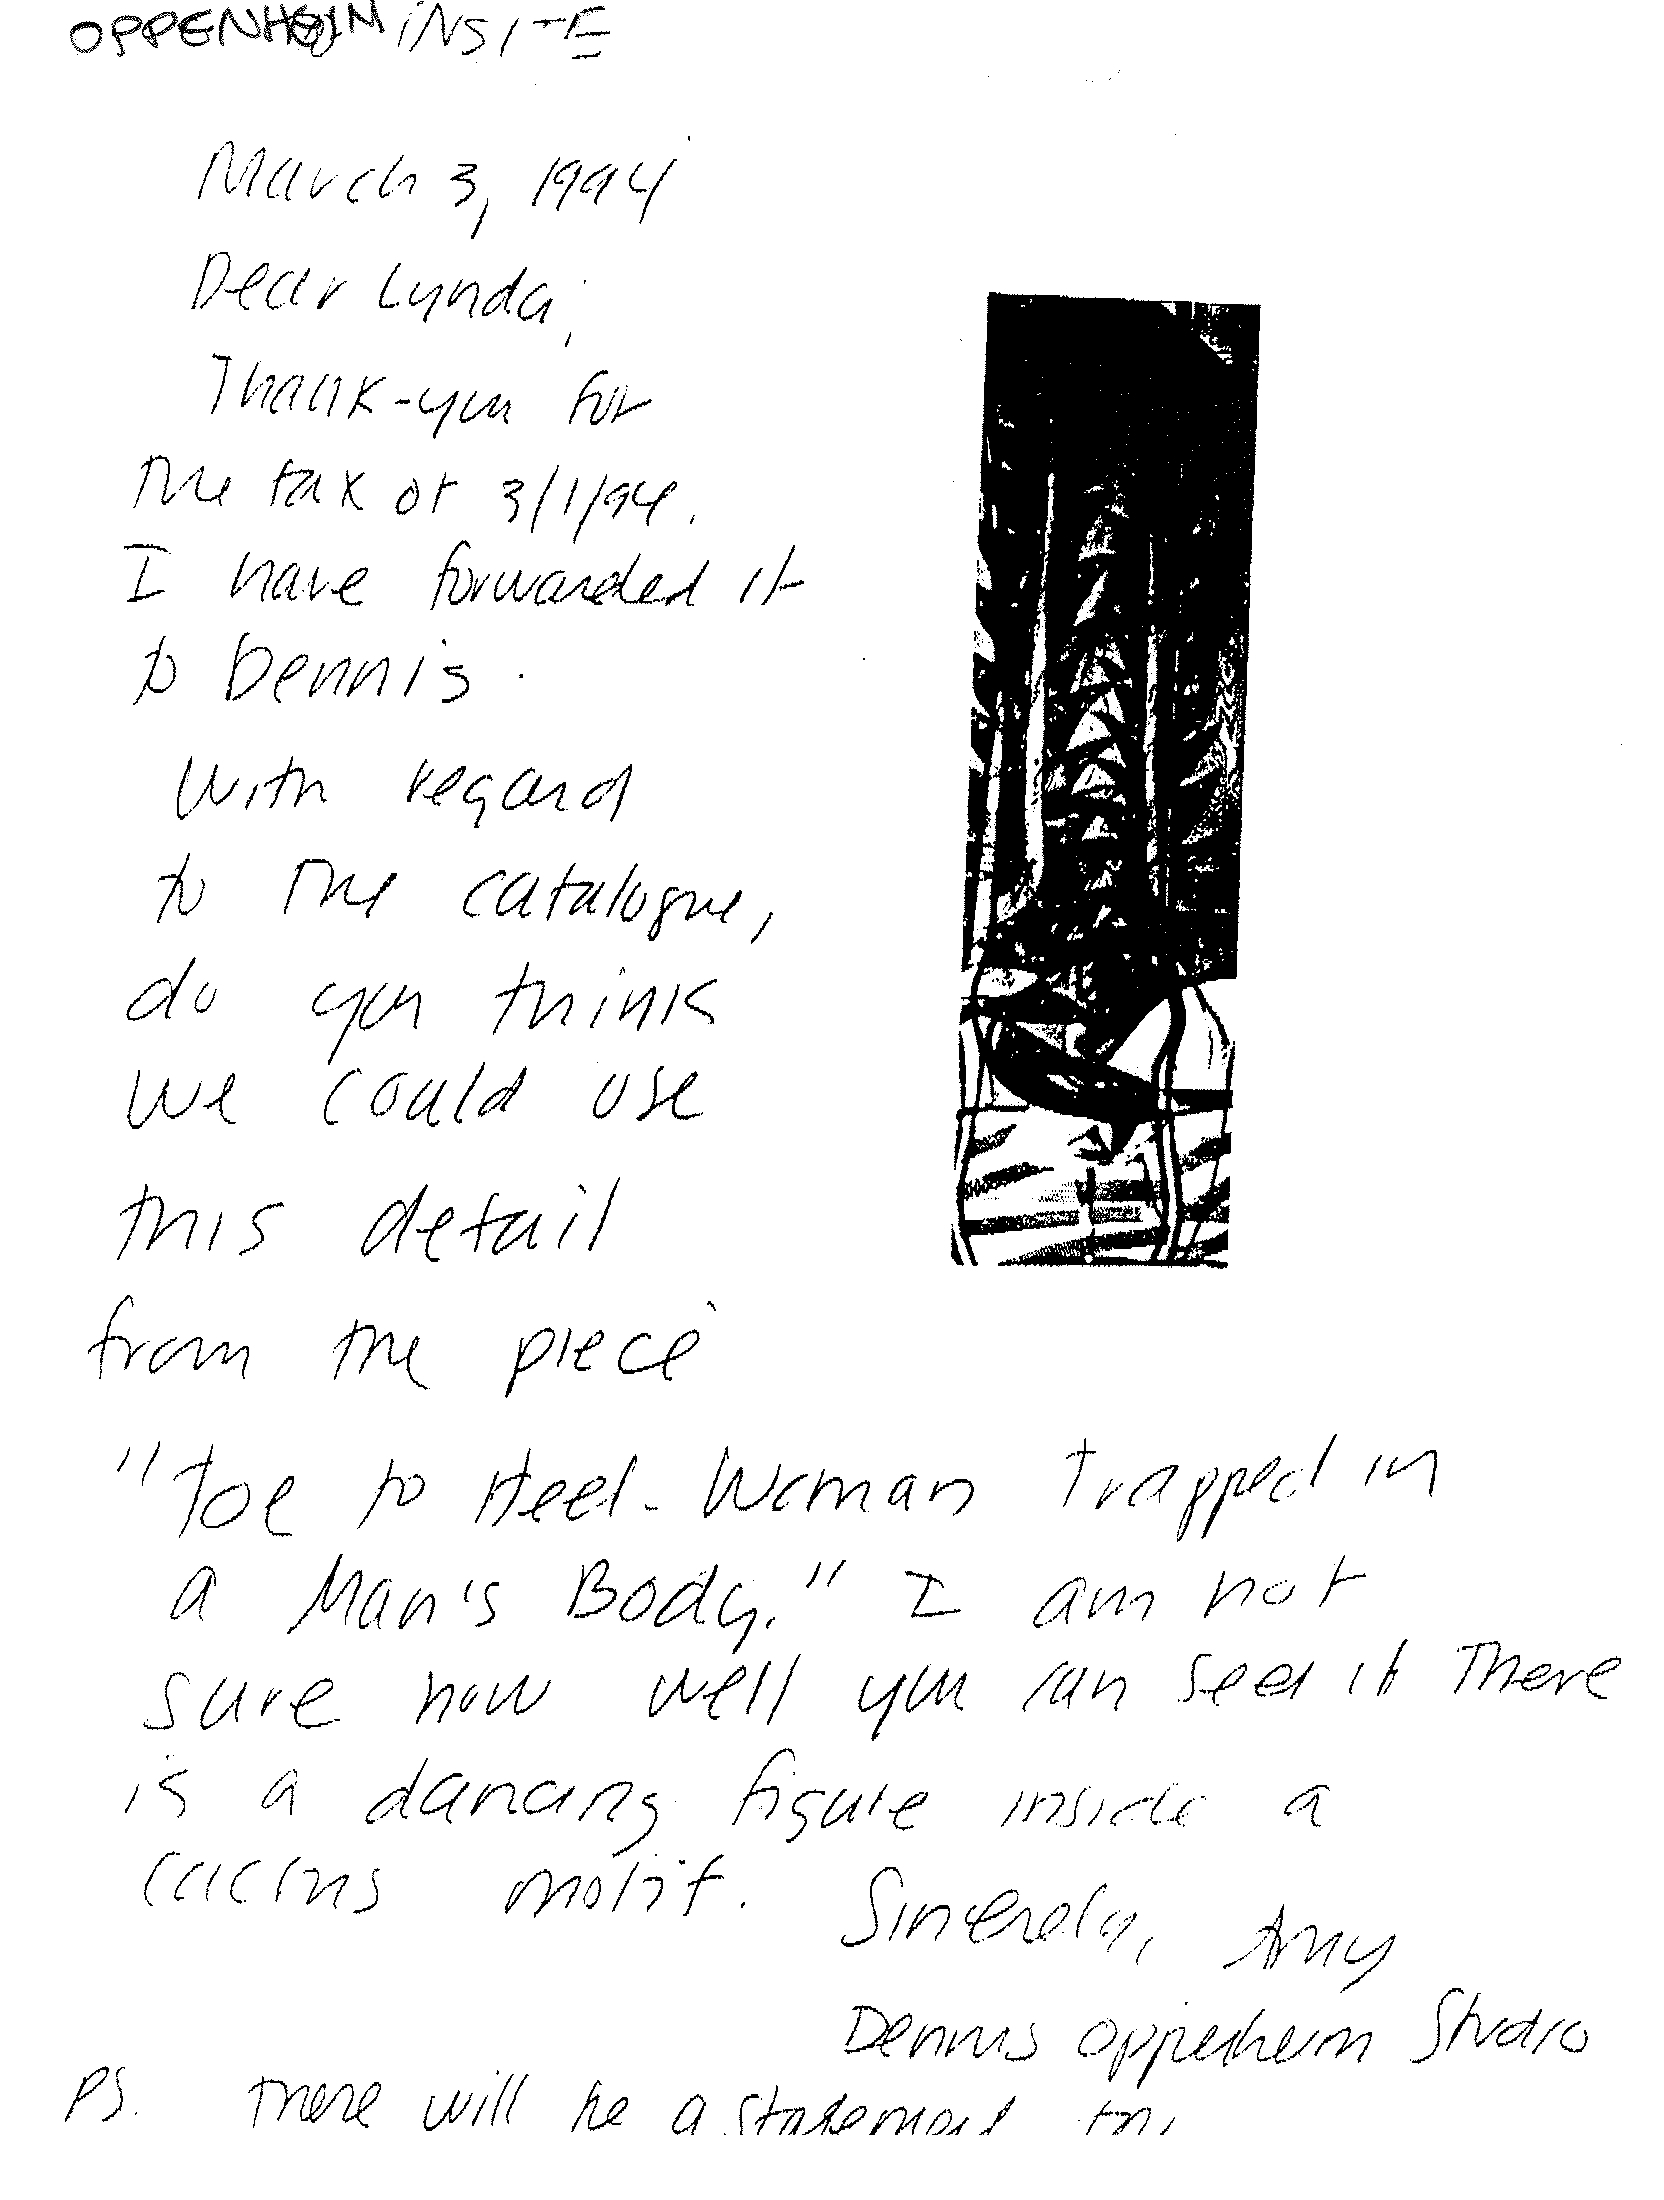 OPPENHEIM INSITE
March 3, 1994
Dear Lynda,
Thank-you for
the fax of 3/1/94.
I have forwarded it
to Dennis.
With regard
to the catalogue,
do you think
we could use
this detail
from the piece
"Toe to Heel - Woman Trapped in
a Man's Body." I am not
sure how well you can see it there
is a dancing figure inside a
cactus motif.
Sincerely, Amy
Dennis Oppenheim Studio
PS. There will be a statement